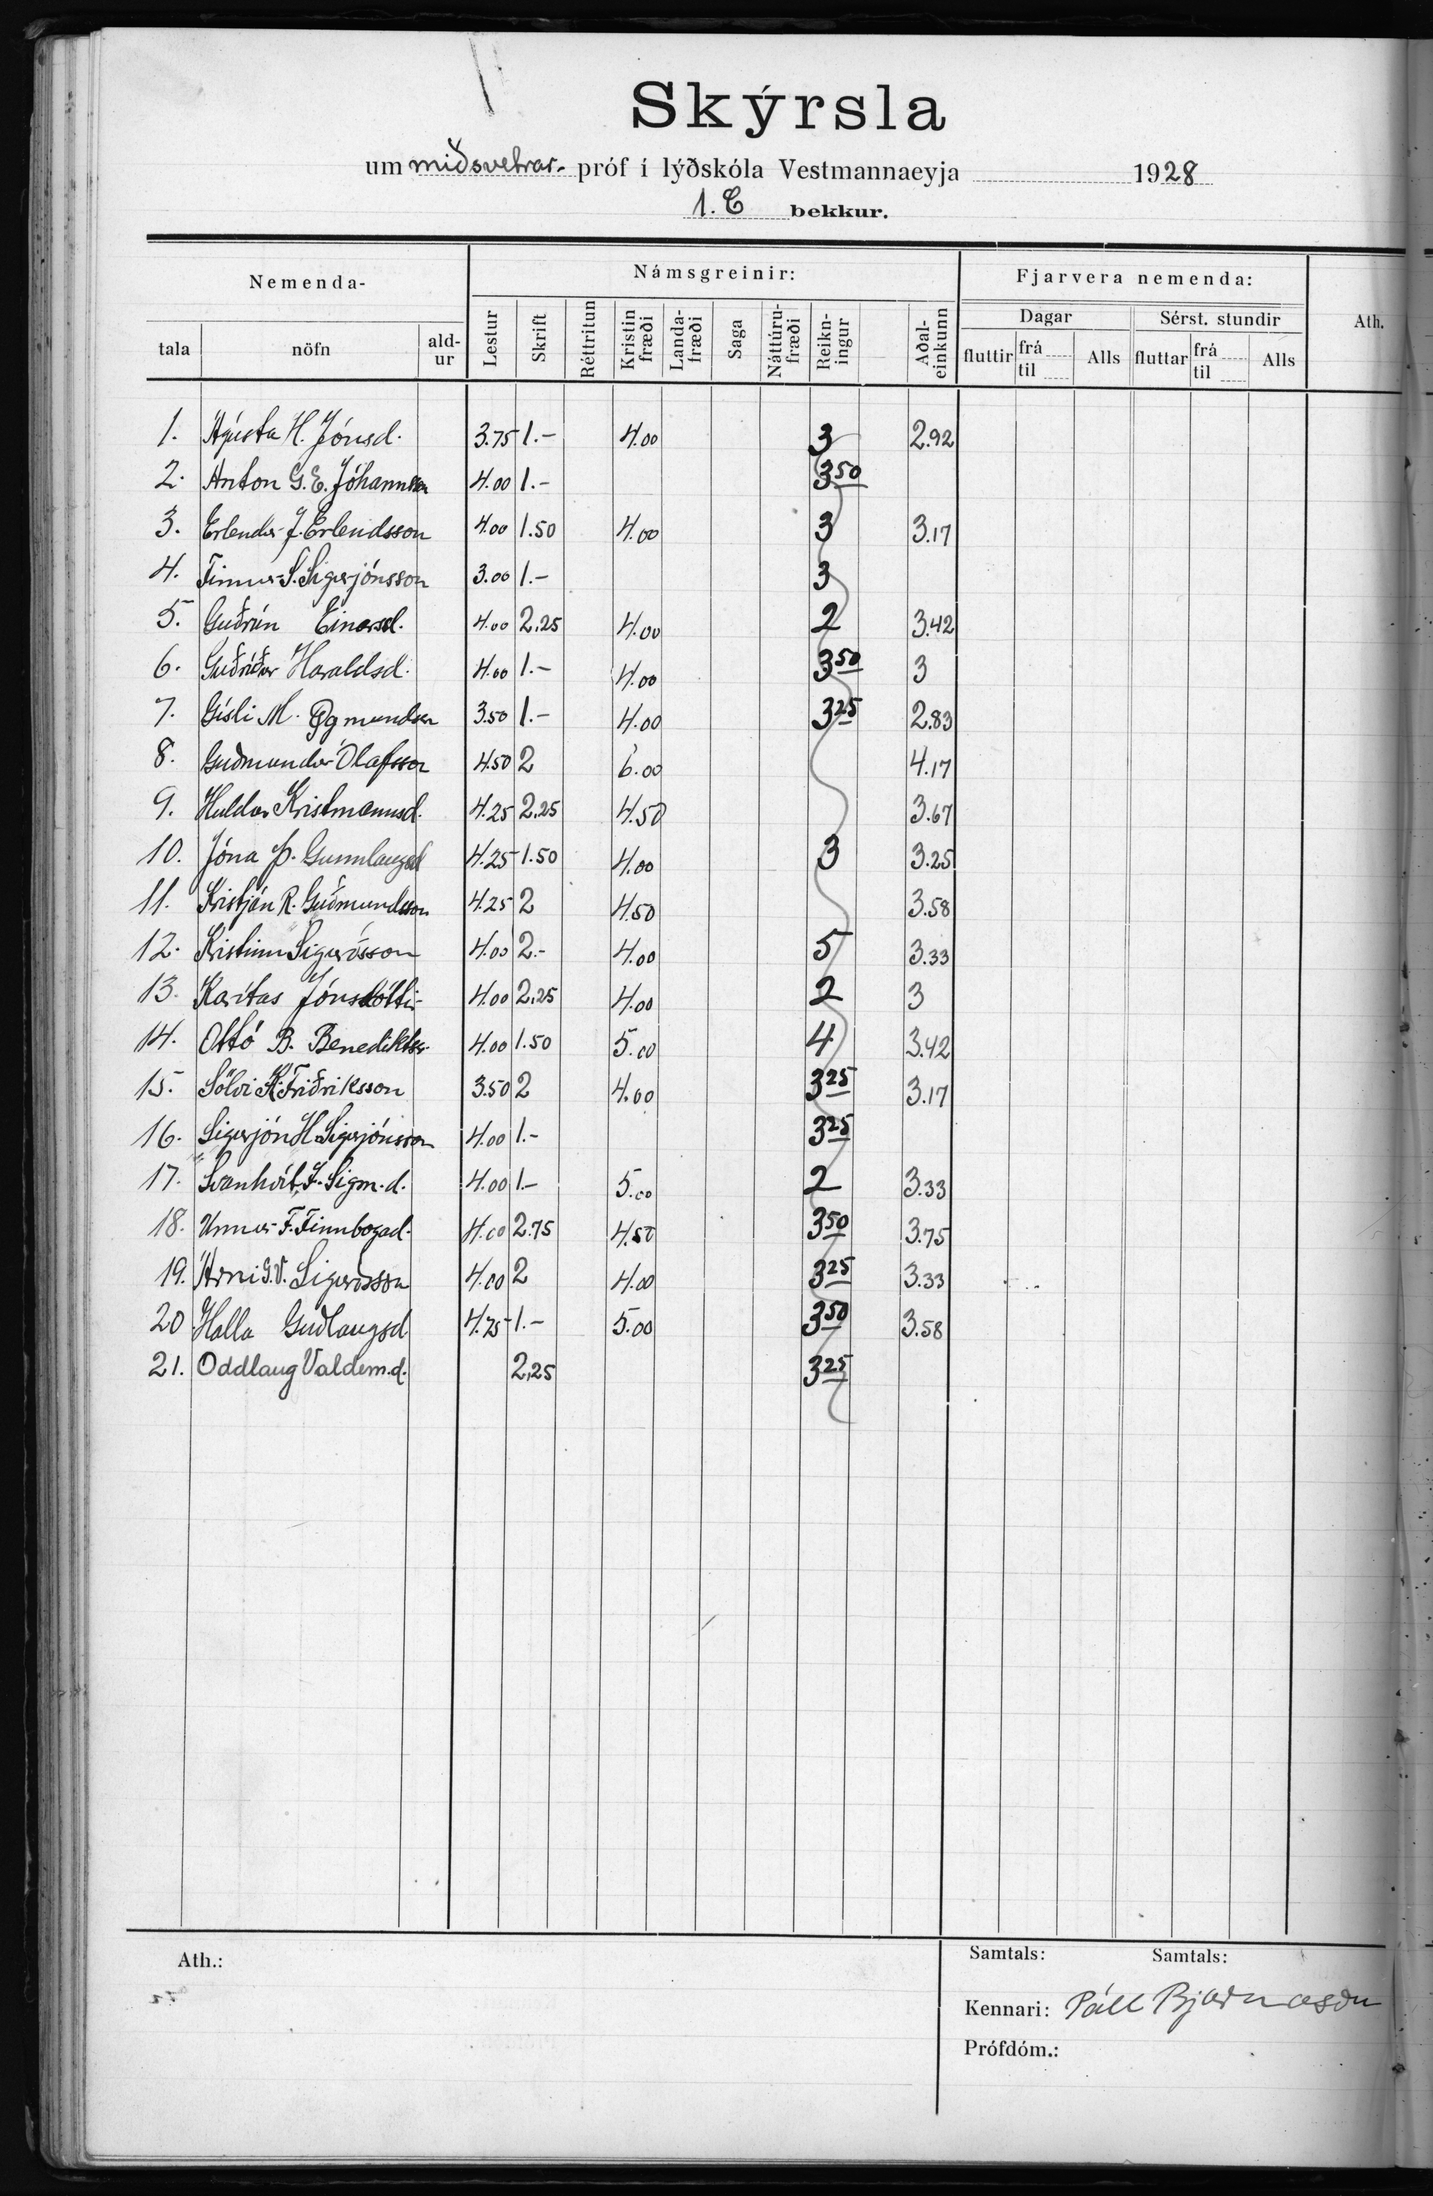 Skýrsla
um miðsvetrar- próf í lýðskóla Vestmannaeyja 1928
1. C bekkur.
Nemenda- Námsgreinir: Fjarvera nemenda: Ath.
tala nöfn ald-ur Lestur Skrift Réttritun Kristin fræði Landa-fræði Saga Náttúru-fræði Reikn-ingur Aðal-einkunn Dagar Sérst. stundir
fluttir frá til Alls fluttar frá til Alls
1. Ágústa H. Jónsd. 3.75 1.- 4.00 3 2.92
2. Anton G. E. Jóhannsson 4.00 1.- 3 50
3. Erlendur J. Erlendsson 4.00 1.50 4.00 3 3.17
4. Finnur S. Sigurjónsson 3.00 1.- 3
5. Guðrún Einarsd. 4.00 2.25 4.00 2 3.42
6. Guðríður Haraldsd. 4.00 1.- 4.00 3 50 3
7. Gísli M. Ögmundsson 3.50 1.- 4.00 3 25 2.83
8. Guðmundur Ólafsson 4.50 2 6.00 4.17
9. Hulda Kristmannsd. 4.25 2.25 4.50 3.67
10. Jóna Þ. Gunnlaugsd 4.25 1.50 4.00 3 3.25
11. Kristján R. Guðmundsson 4.25 2 4.50 3.58
12. Kristinn Sigurðsson 4.00 2.- 4.00 5 3.33
13. Karítas Jónsdóttir 4.00 2.25 4.00 2 3
14. Ottó B. Benediktss. 4.00 1.50 5.00 4 3.42
15. Sölvi K. Friðriksson 3.50 2 4.00 3 25 3.17
16. Sigurjón H. Sigurjónsson 4.00 1.- 3 25
17. Svanhvít I. Sigm.d. 4.00 1.- 5.00 2 3.33
18. Unnur F. Finnbogad. 4.00 2.75 4.50 3 50 3.75
19. Árni G. V. Sigurðsson 4.00 2 4.00 3 25 3.33
20 Halla Guðlaugsd 4.75 1.- 5.00 3 50 3.58
21. Oddlaug Valdem.d. 2,25 3 25
Ath.: Samtals: Samtals:
Kennari: Páll Bjarnason
Prófdóm.: